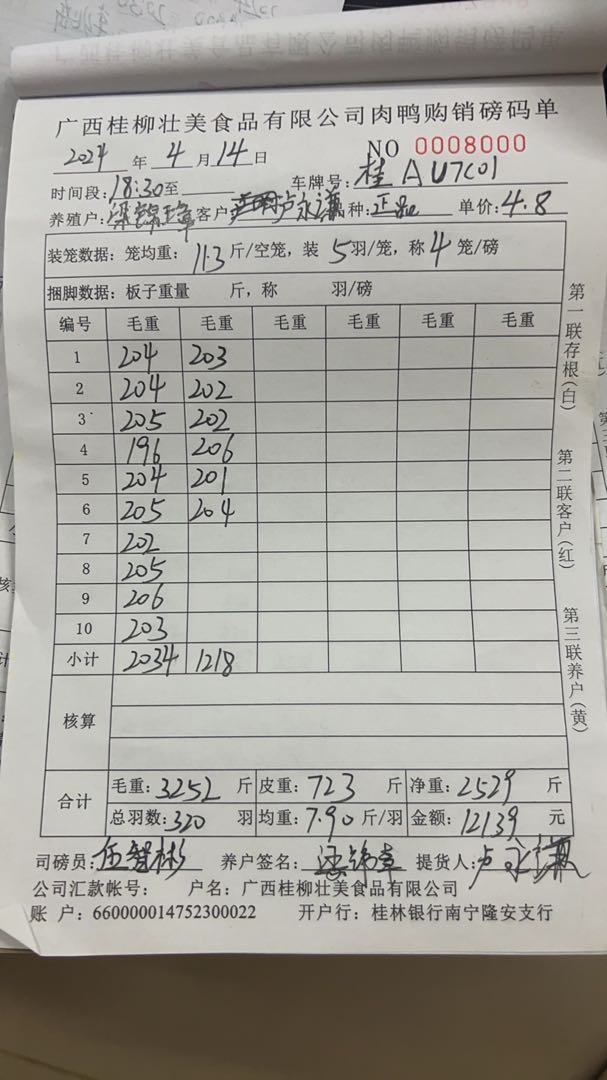 广西桂柳壮美食品有限公司肉鸭购销磅码单
2024 年 4 月 14 日 NO 0008000
时间段: 18:30 至 车牌号: 桂AU7C01
养殖户: 梁锦章 客户: 卢永谦 品种: 正品 单价: 4.8
装笼数据: 笼均重: 11.3 斤/空笼, 装 5 羽/笼, 称 4 笼/磅
捆脚数据: 板子重量 斤, 称 羽/磅
编号 毛重 毛重 毛重 毛重 毛重 毛重
1 204 203
2 204 202
3 205 202
4 196 206
5 204 201
6 205 204
7 202
8 205
9 206
10 203
小计 2034 1218
核算
合计 毛重: 3252 斤 皮重: 723 斤 净重: 2529 斤
总羽数: 320 羽 均重: 7.90 斤/羽 金额: 12139 元
司磅员: 伍智彬 养户签名: 梁锦章 提货人: 卢永谦
公司汇款帐号: 户名: 广西桂柳壮美食品有限公司
账 户: 660000014752300022 开户行: 桂林银行南宁隆安支行
第一联存根(白)
第二联客户(红)
第三联养户(黄)